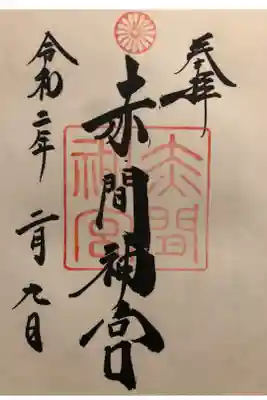 奉拝
赤間神宮
令和二年
二月九日
赤間
神宮